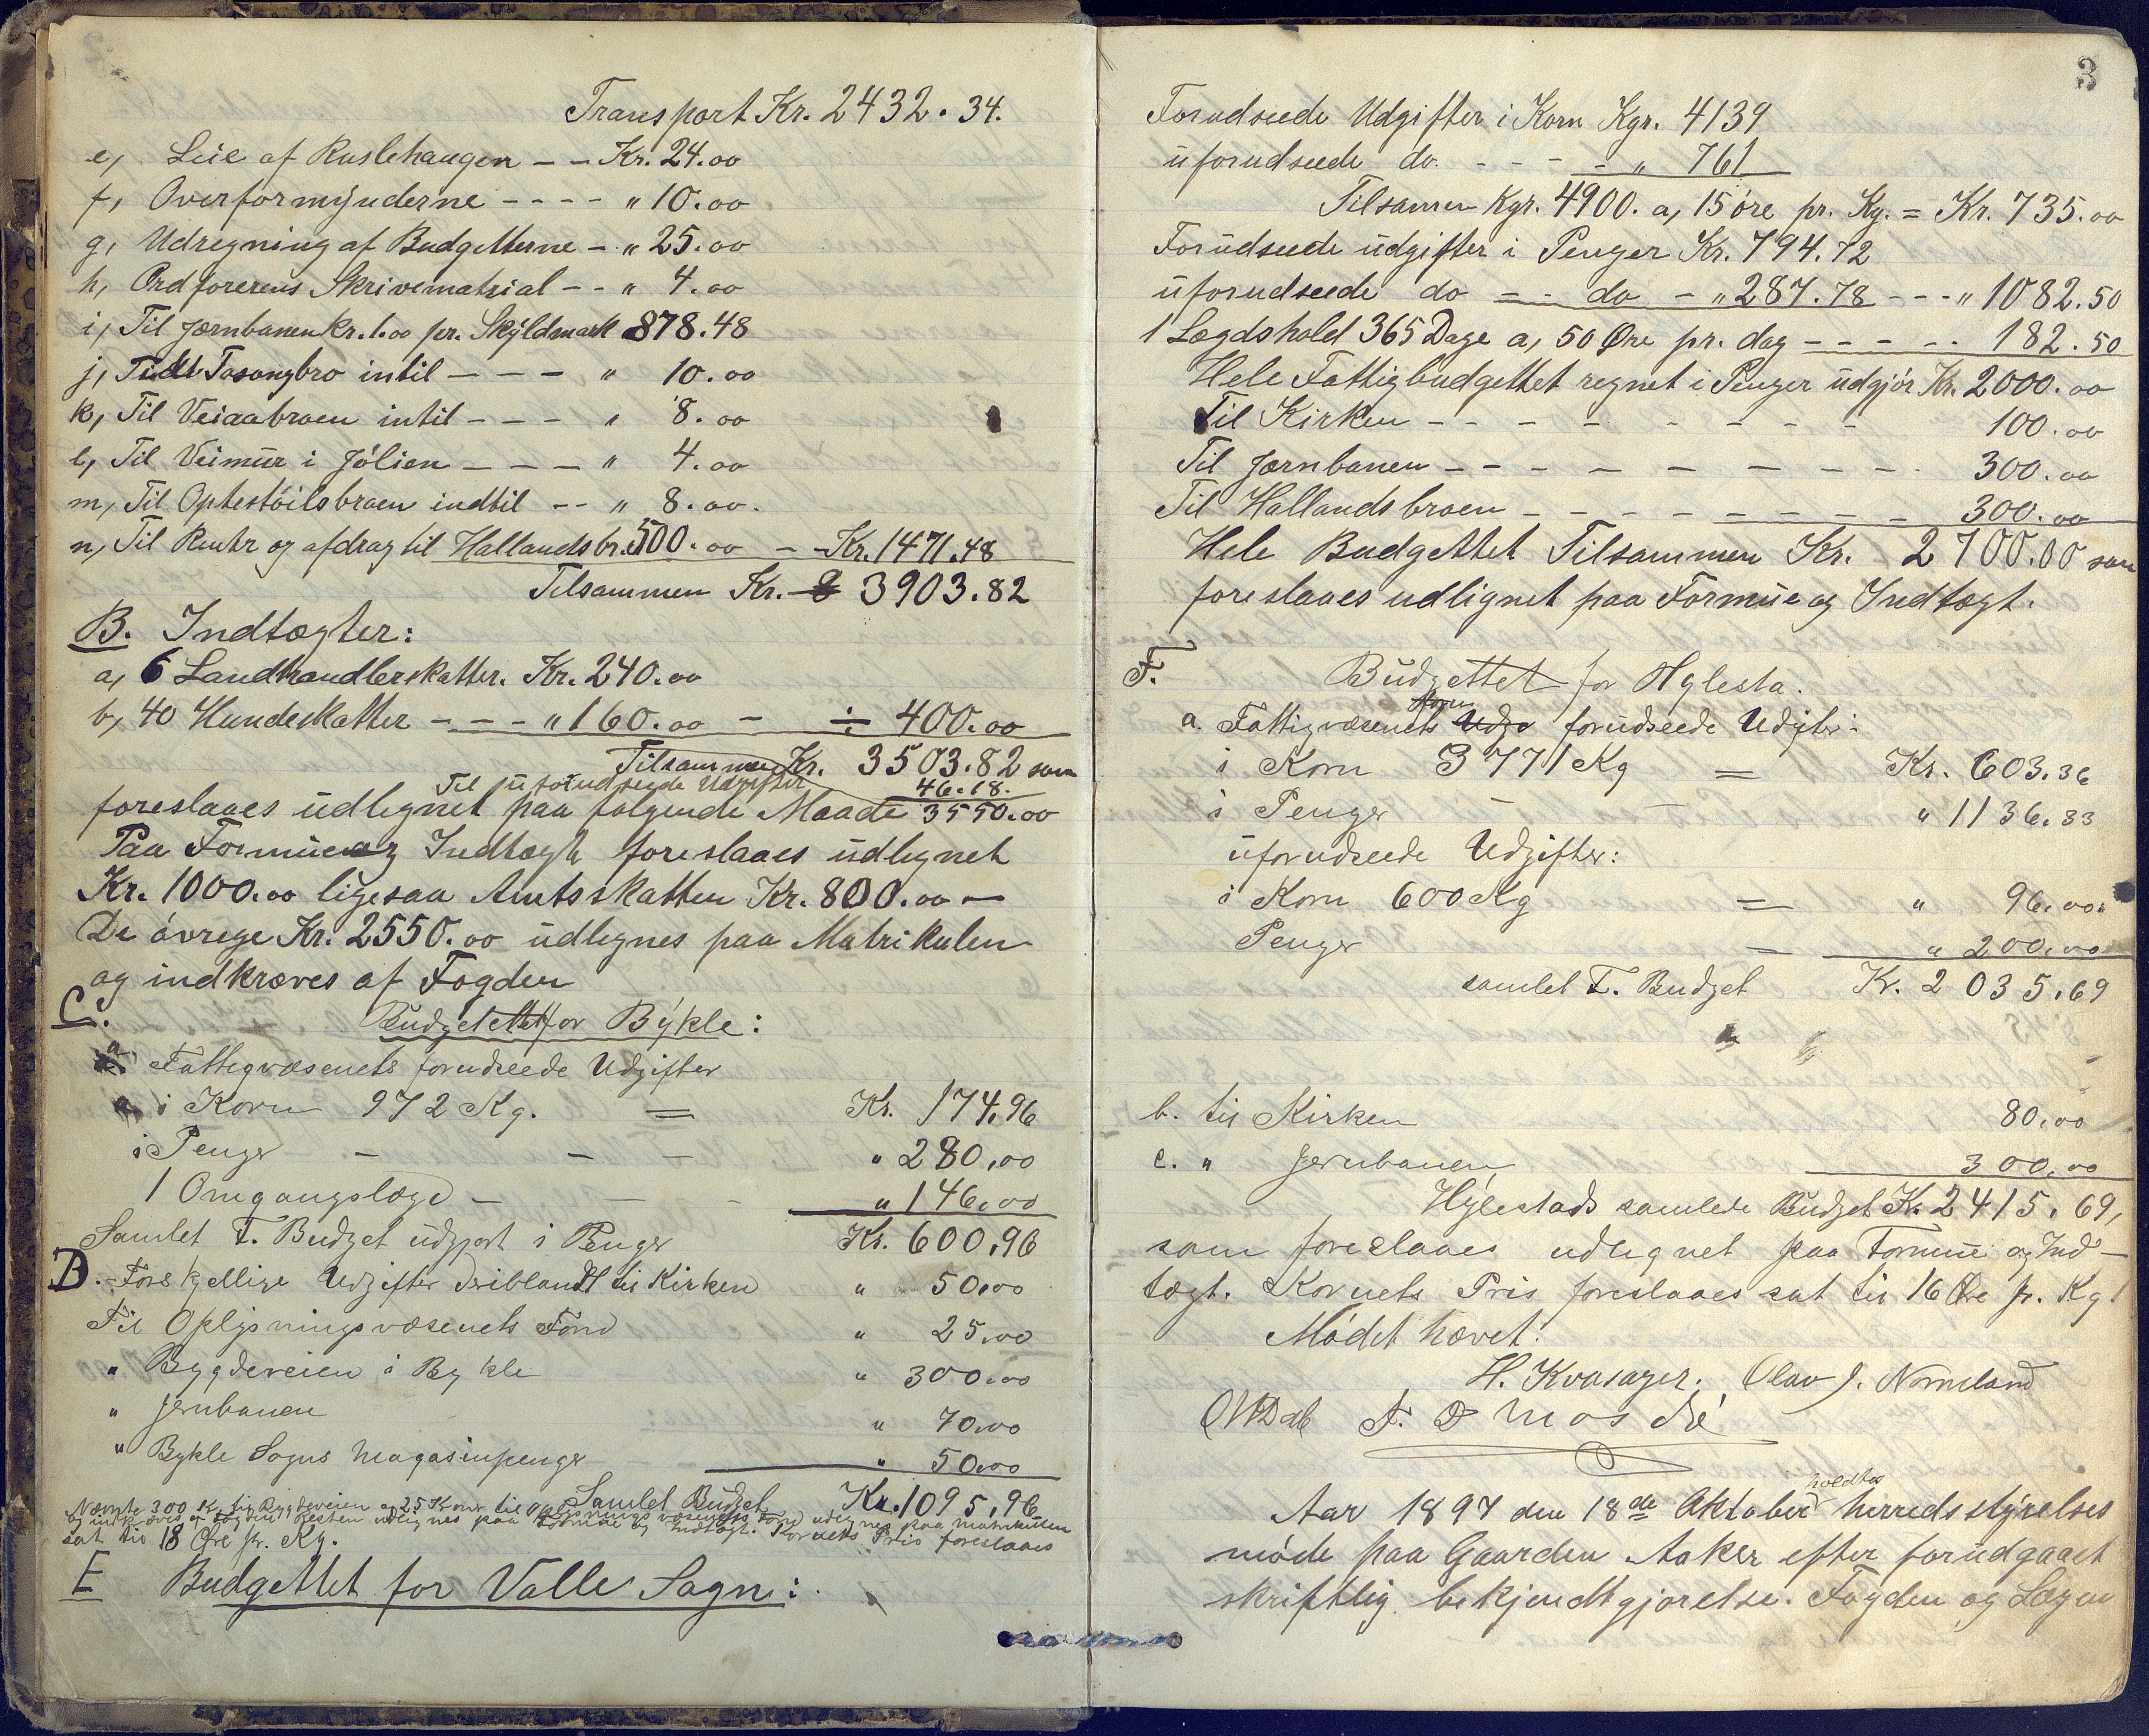 Transport Kr. 2432.34.
e, Leie af Ruslehaugen - - Kr. 24.00
f, Overformynderne - - - - " 10.00
g, Udregning af Budgetterne - " 25.00
h, Ordförerens Skrivematrial - - " 4.00
i, Til Jernbanen Kr. 1.00 pr. Skyldmark 878.48
j, Tidt Tosongbro intil - - - " 10.00
k, Til Veiaabroen intil - - - " 8.00
l, Til Veimur i Jólien - - - " 4.00
m, Til Optestöilsbroen indtil - - " 8.00.
n, Til Renter og afdrag til Hallandsbr. 500.00 - Kr. 1471.48
Tilsammen Kr. 3903.82
B. Indtægter:
a, 6 Landhandlerskatter. Kr. 240.00
b, 40 Hundeskatter - - - " 160.00 - ÷ 400.00
Tilsammen Kr. 3503.82 som
Til uforudseede Udgifter 46.18.
foreslaaes udlignet paa følgende Maade 3550.00
Paa Formue og Indtægt foreslaaes udlignet
Kr. 1000.00 ligesaa Amtsskatten Kr. 800.00 -
De övrege Kr. 2550.00 udlignes paa Matrikulen
og indkræves af Fogden
C. Budgettet for Bykle:
a Fattigvæsenets forudseede Udgifter
i Korn 972 Kg. = Kr. 174,96
i Penger - - - " 280,00
1 Omgangslægd - - - " 146,00
Samlet F. Budget udgjort i Penger Kr. 600,96
D. Forskjellige Udgifter deriblandt til Kirken " 50,00
Til Oplysningsvæsenets Fond " 25,00
" Bygdeveien i Bykle " 300,00
" Jernbanen " 70,00
" Bykle Sogns Magasinpenger " 50,00
Samlet Budget Kr. 1095,96
Nævnte 300 Kr. til Bygdeveien og 25 Kroner til Oplysningsvæsenets Fond udlignes paa matrikulen
og indkræves af Fogden. Resten udlignes paa Formue og Indtægt. Kornets Pris foreslaaes
sat til 18 Øre pr. Kg.
E Budgettet for Valle Sogn:
3
Forudseede Udgifter i Korn Kgr. 4139
uforudseede do. - - - - " 761
Tilsamen Kgr. 4900. a, 15 øre pr. Kg. = Kr. 735.00
Forudseede udgifter i Penger Kr. 794.72
uforudseede do - - do - " 287.78 - - - " 1082.50
1 Lægdshold 365 Dage a, 50 Øre pr. dag - - - - - 182.50
Hele Fattigbudgettet regnet i Penger udgjör Kr. 2000.00
Til Kirken - - - - - - - - 100.00
Til Jernbanen - - - - - - - - 300.00
Til Hallandsbroen - - - - - - - - 300.00
Hele Budgettet Tilsammen Kr. 2700.00 som
foreslaaes udlignet paa Formue og Indtægt.
F. Budgettet for Hylesta.
a. Fattigvæsenets Udgi forudseede Udgifter:
i Korn 3771 Kg = Kr. 603.36
i Penger - - " 1136.33
uforudseede Udgifter:
i Korn 600 Kg = " 96,00.
Penger = " 200,00
samlet F. Budget Kr. 2035,69
b. til Kirken 80,00
c. " Jernbanen 300,00
Hylestads samlede Budget Kr. 2415,69,
som foreslaaes udlignet paa Formue og Ind-
tægt. Kornets Pris foreslaaes sat til 16 Øre pr. Kg
Mødet hævet.
H. Kvasager. Olav J. Nomeland
F. D Mosdö
holdtes
Aar 1897 den 18de Oktober herredsstyrelses
møde paa Gaarden Aaker efter forudgaaet
skriftlig bekjendtgjørelse. Fogden og Lægen